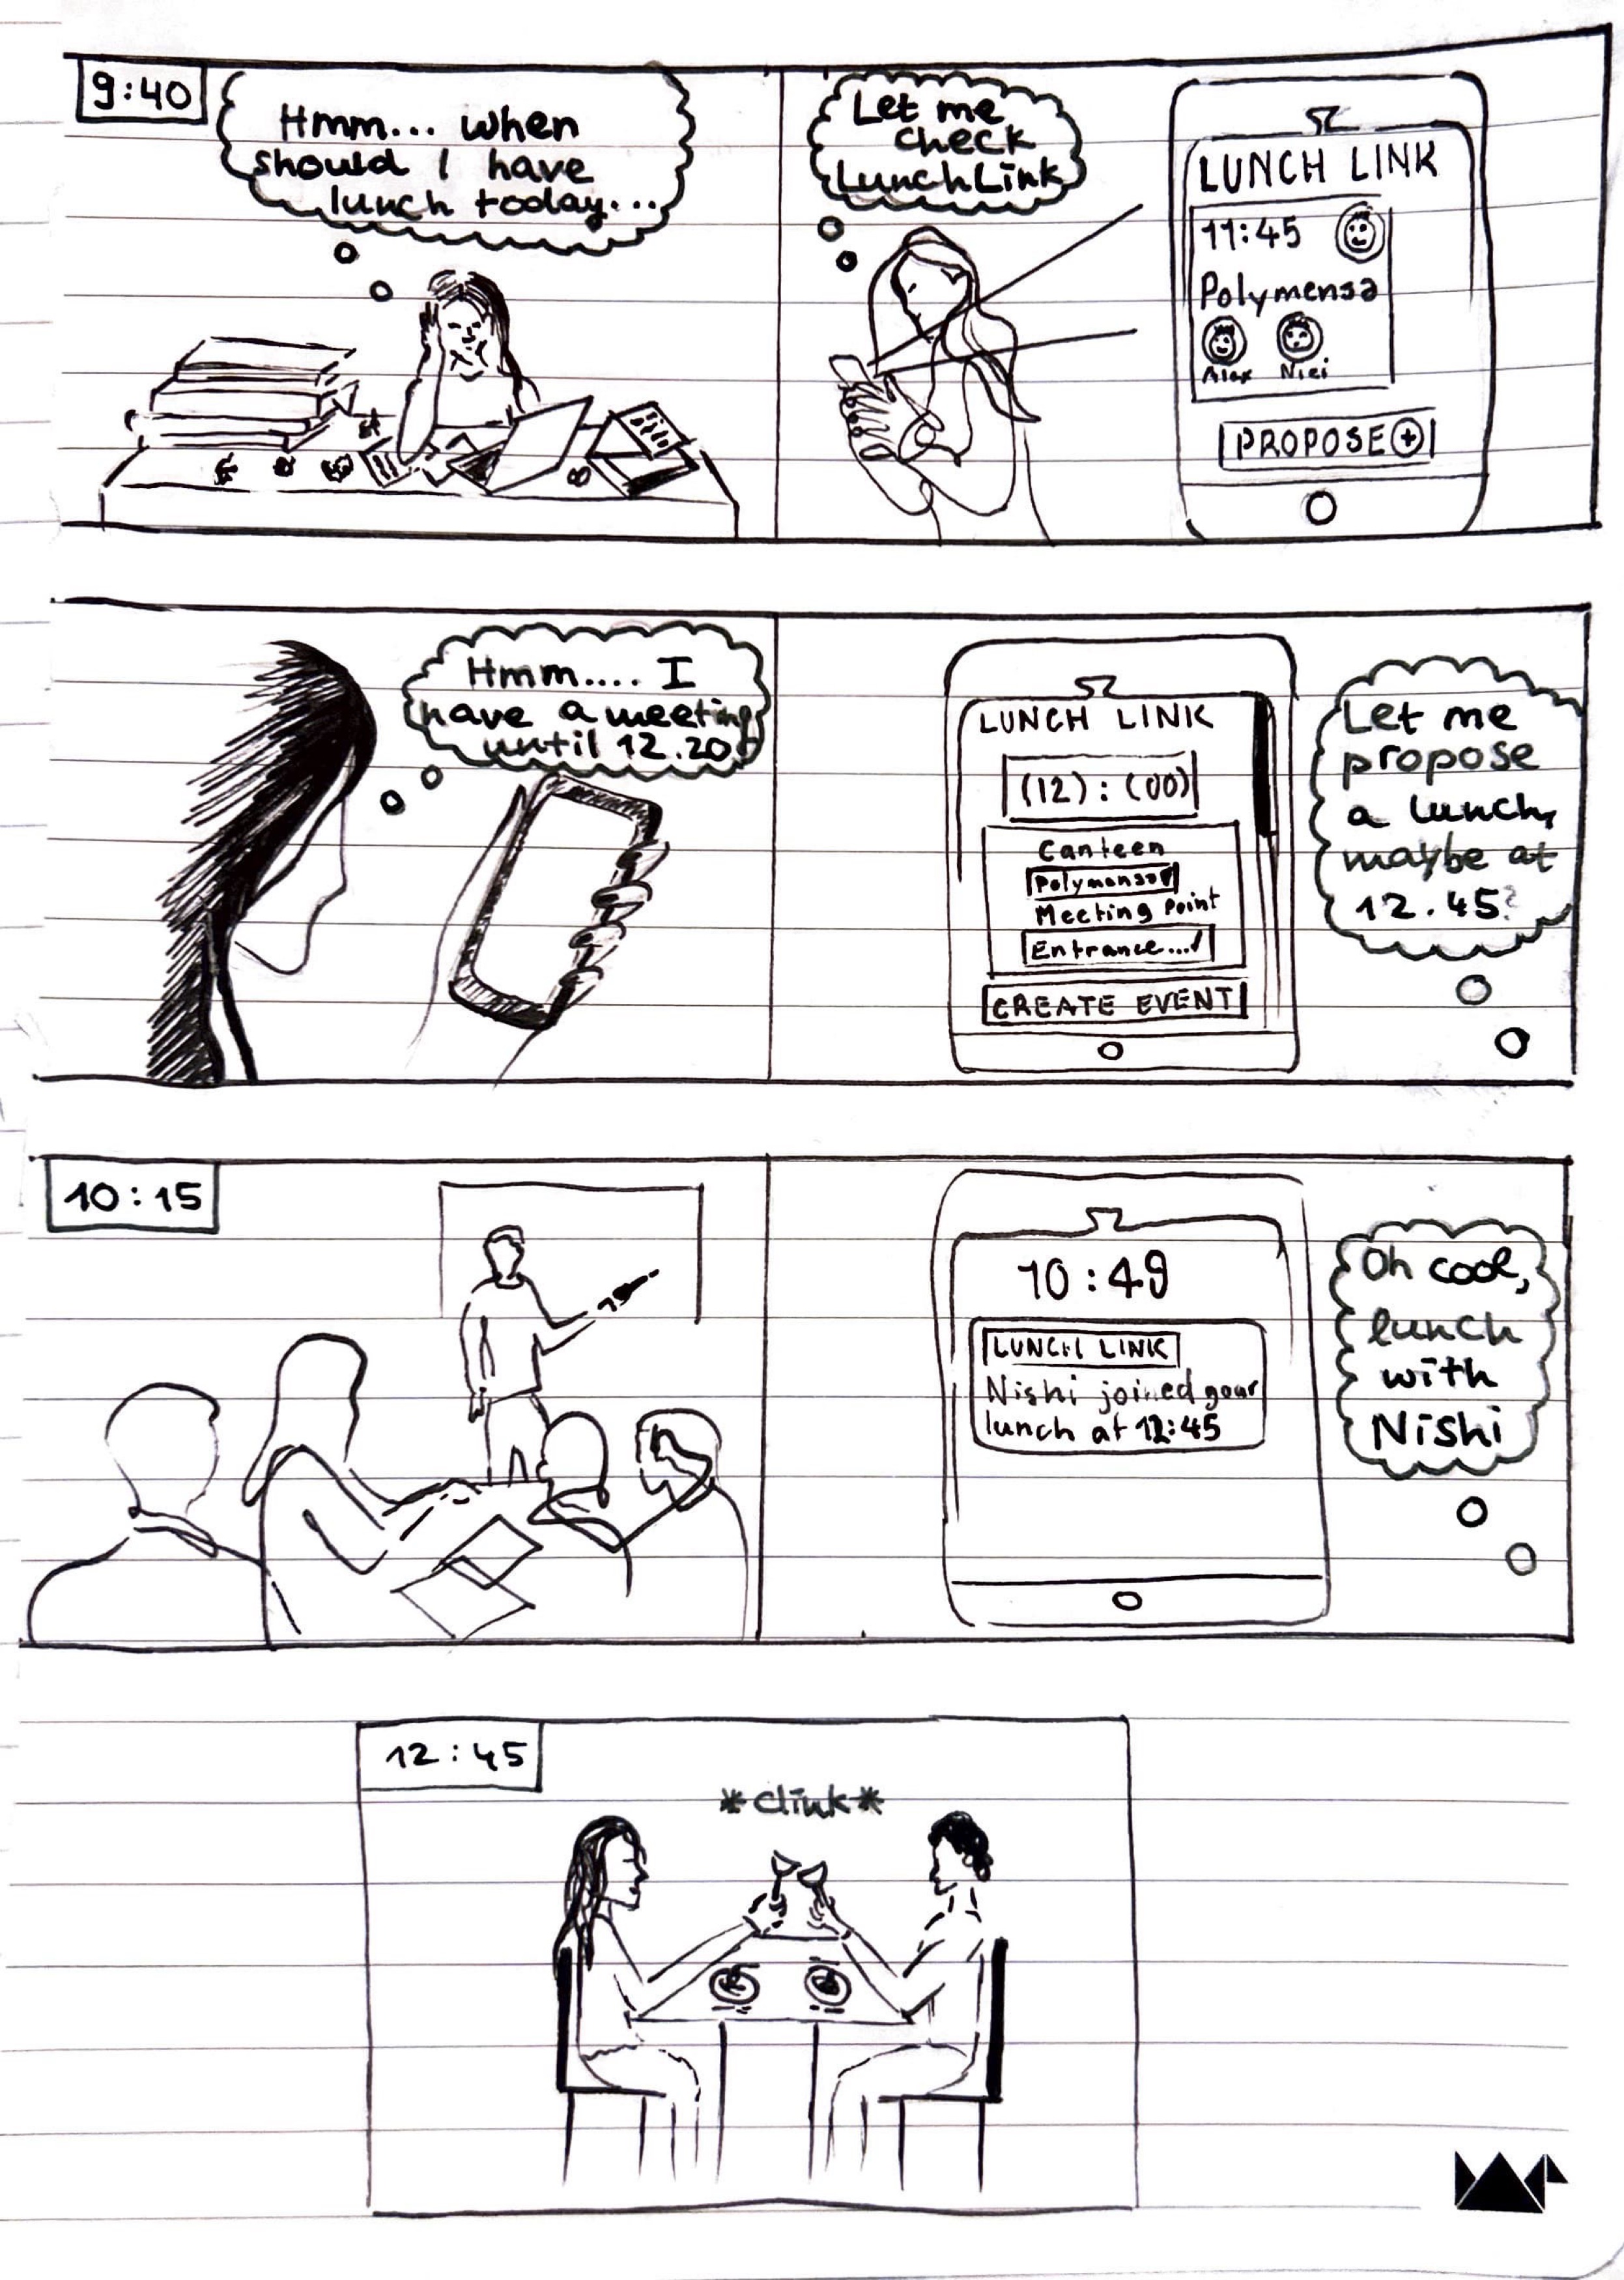 9:40
Hmm... when
should I have
lunch today...
Let me
check
LunchLink
LUNCH LINK
11:45
Polymensa
Alex Nici
PROPOSE +
Hmm.... I
have a meeting
until 12.20
LUNCH LINK
(12) : (00)
Canteen
Polymensa
Meeting Point
Entrance...
CREATE EVENT
Let me
propose
a lunch,
maybe at
12.45?
10:15
10:49
LUNCH LINK
Nishi joined your
lunch at 12:45
Oh cool,
lunch
with
Nishi
12:45
*clink*